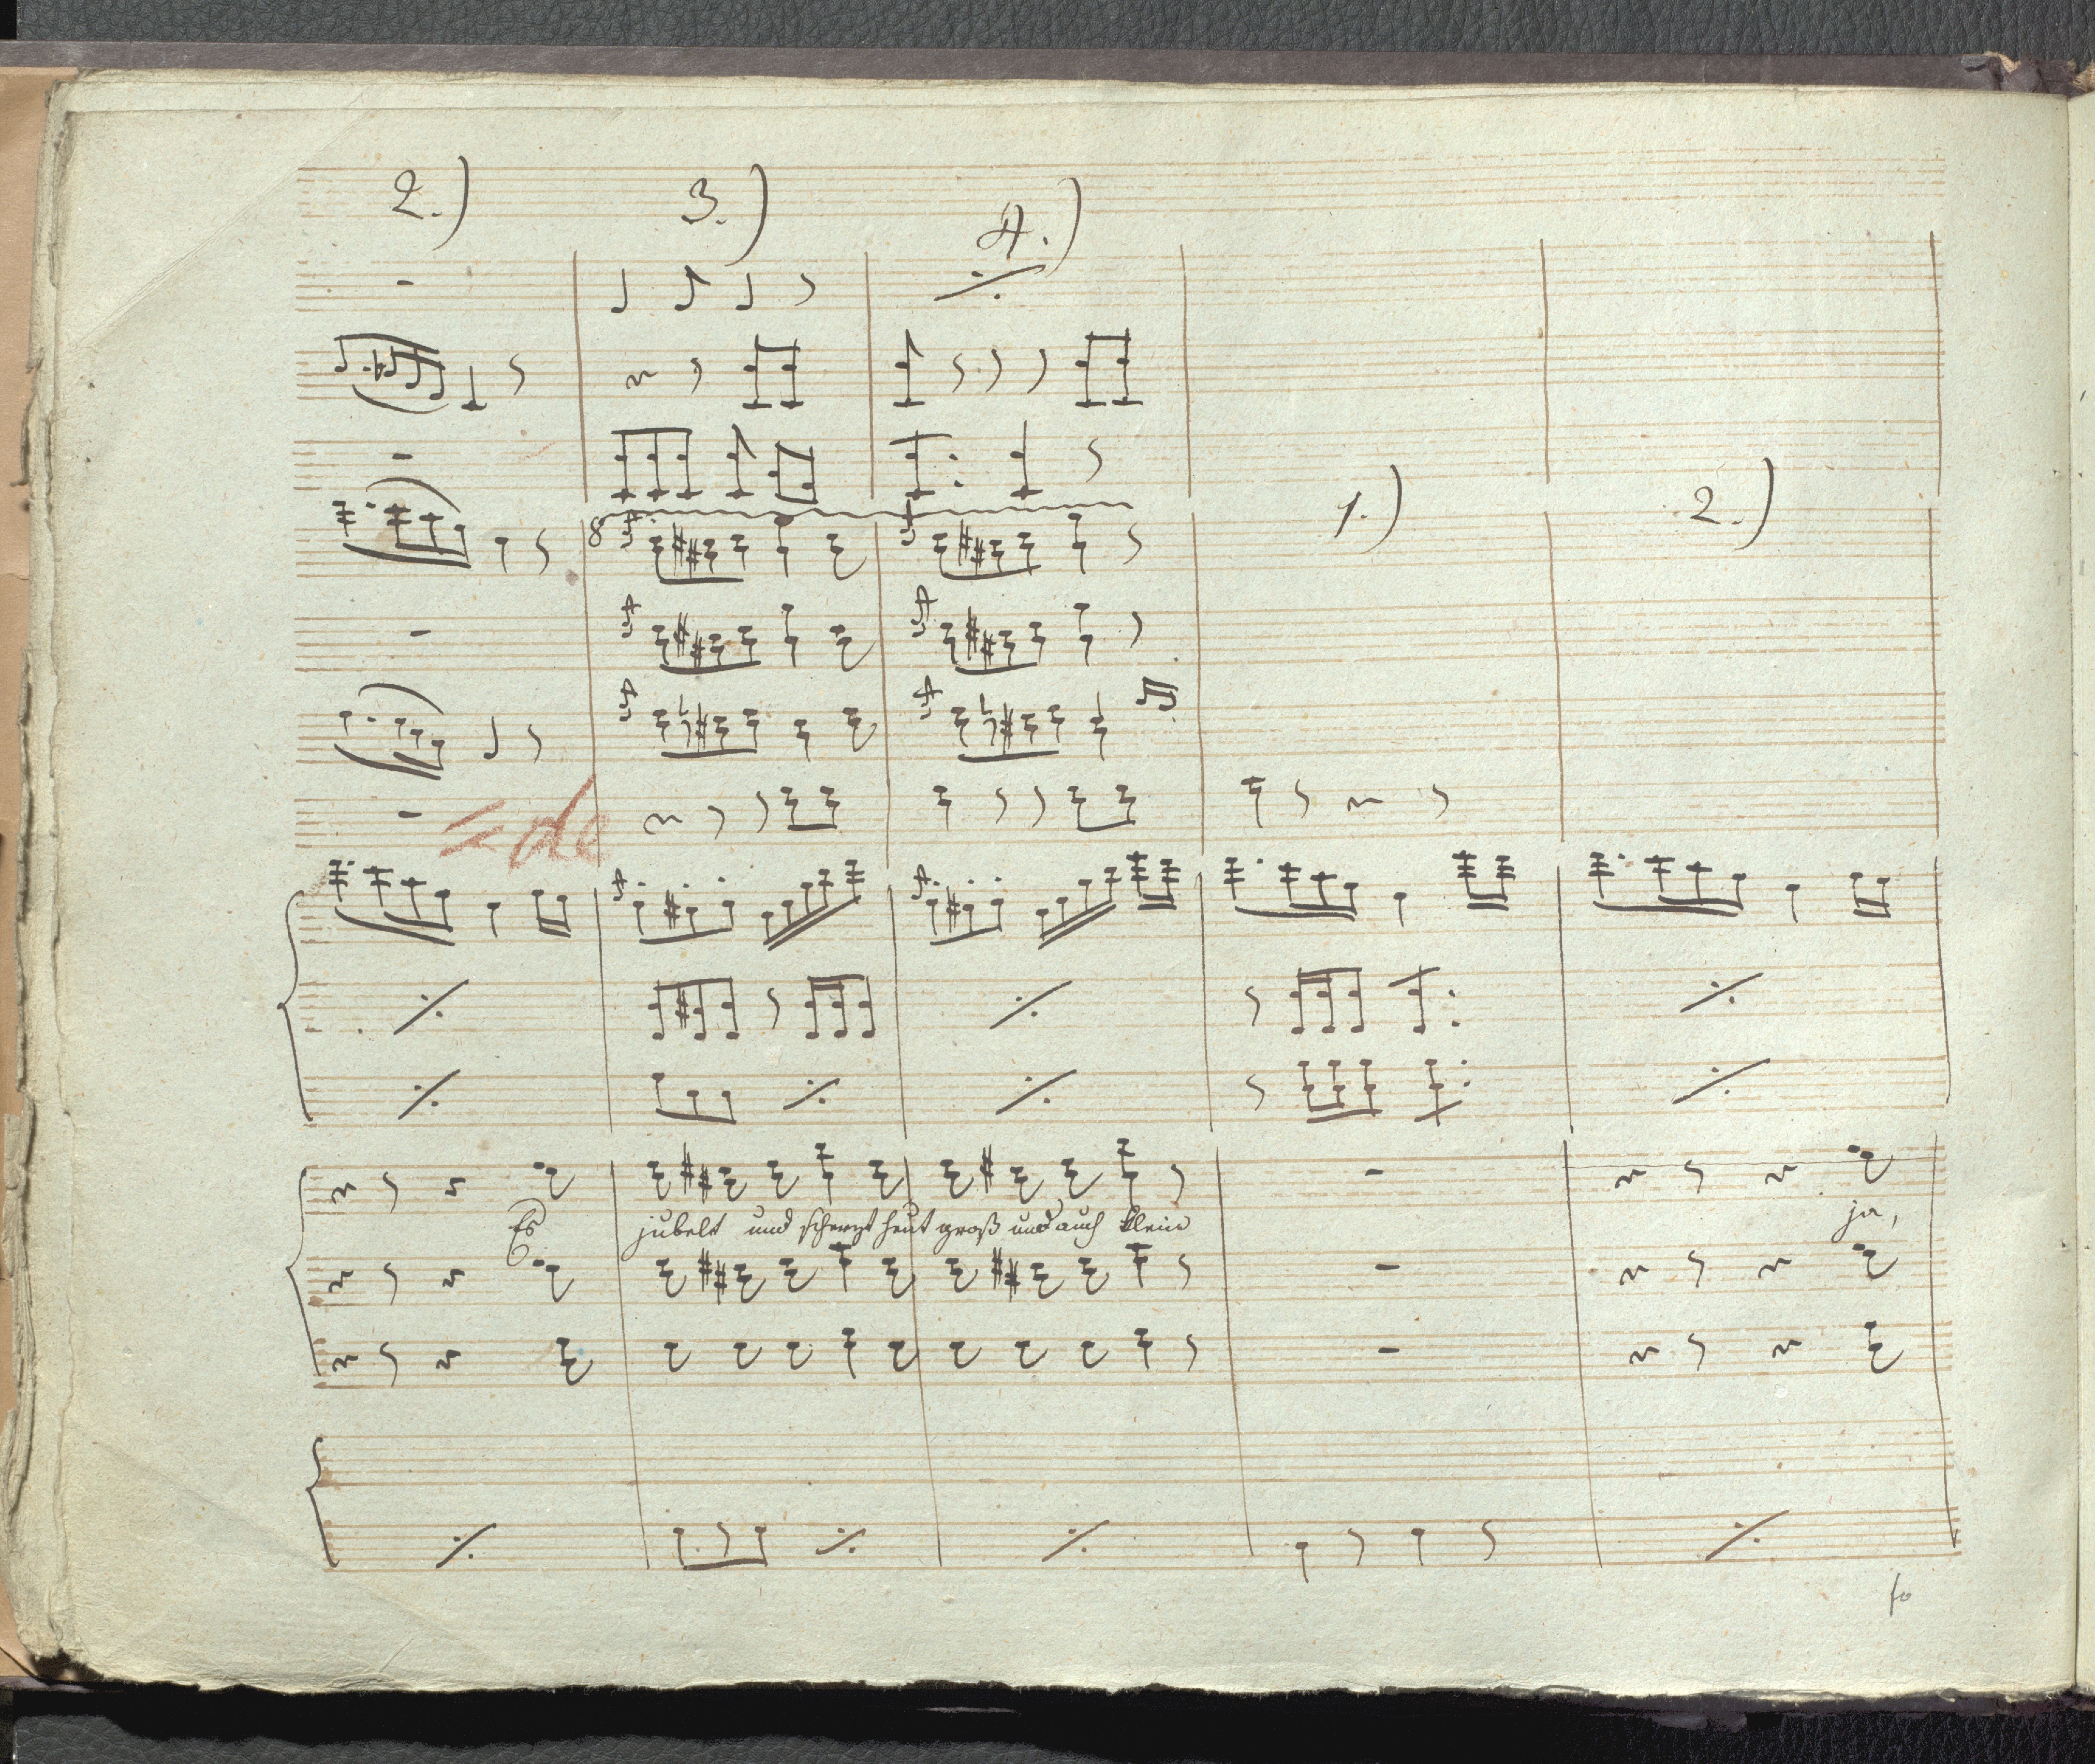 2.) 3.) 4.)
8
1.) 2.)
=de
Es jubelt und scherzt heut groß und auch klein ja,